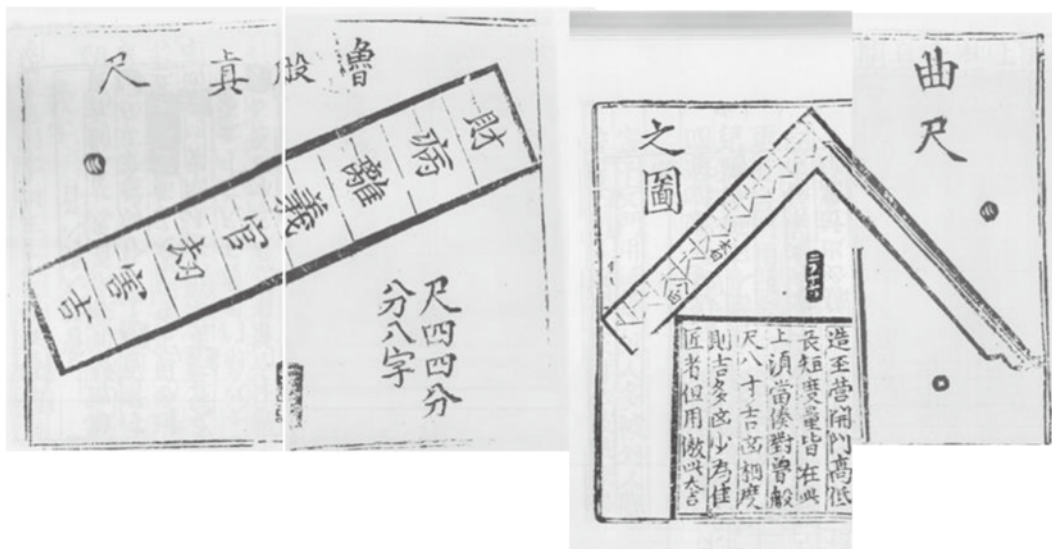 魯般真尺
財病離義官刼害吉
尺四四分
分八字
曲尺
之圖
造至营開門高低
長短度量皆在此
上須當湊對魯般
尺八寸吉凶相度
則吉多凶少為佳
匠者但用倣此大吉